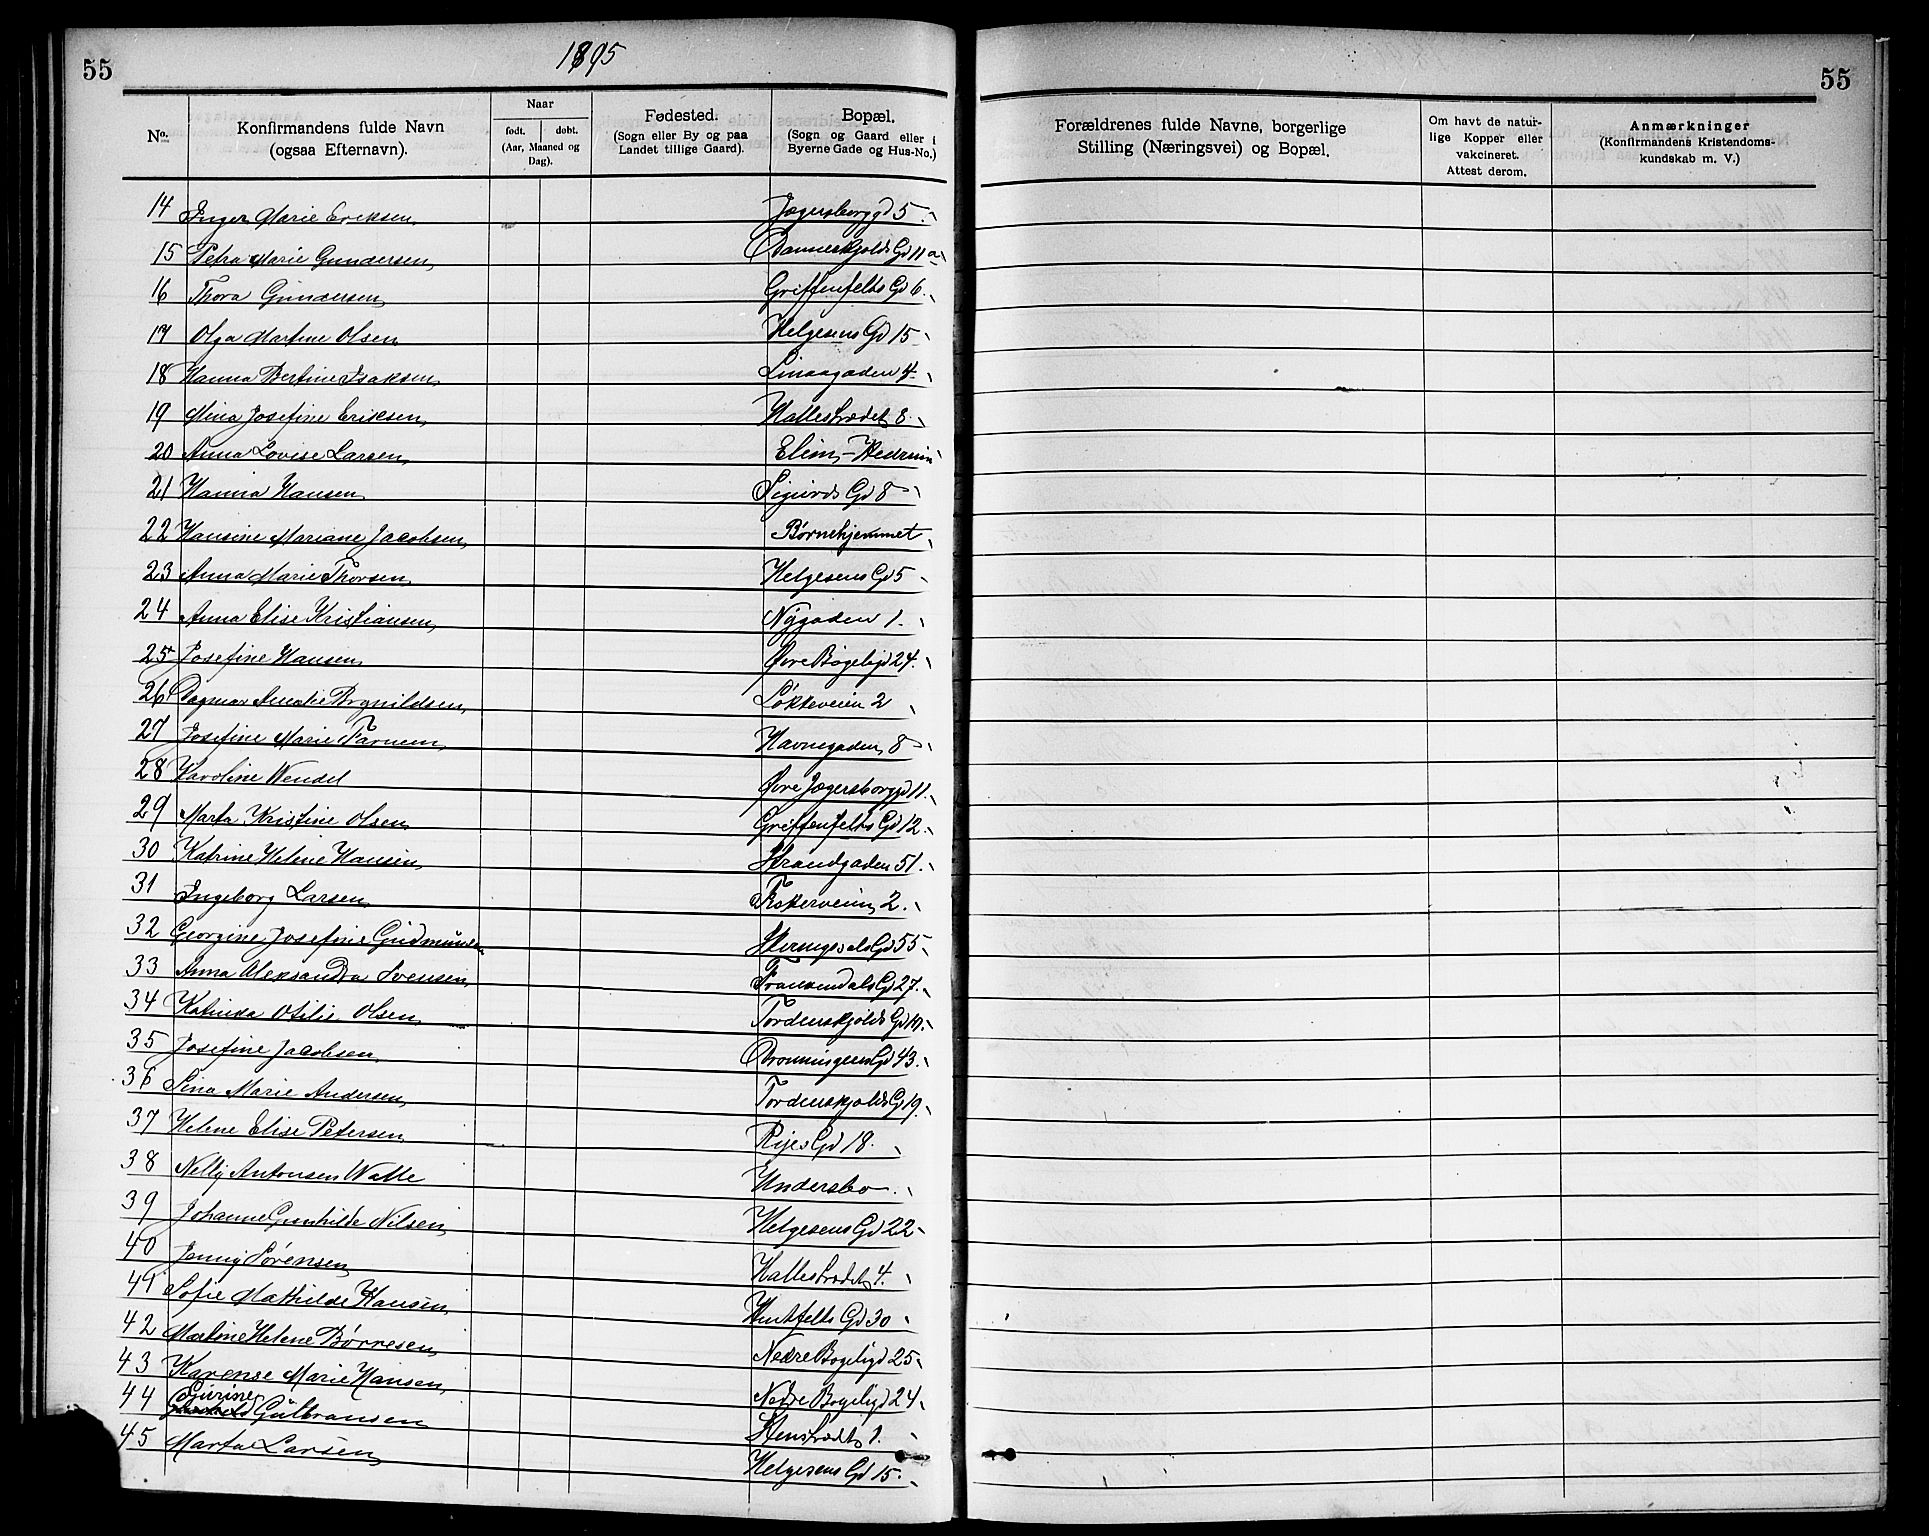 55
1895
55
No.
Konfirmandens fulde Navn
(ogsaa Efternavn).
Naar
født. | døbt.
(Aar, Maaned og
Dag).
Fødested.
(Sogn eller By og paa
Landet tillige Gaard).
Bopæl.
(Sogn og Gaard eller i
Byerne Gade og Hus-No.)
Forældrenes fulde Navne, borgerlige
Stilling (Næringsvei) og Bopæl.
Om havt de natur-
lige Kopper eller
vakcineret.
Attest derom.
Anmærkninger
(Konfirmandens Kristendoms-
kundskab m. V.)
14 Inger Marie Eriksen Jægersborggd 5
15 Petra Marie Gundersen Danneskjolds Gd 11 a
16 Thora Gundersen Griffenfelts Gd 6
17 Olga Martine Olsen Helgesens Gd 15
18 Hanna Bertine Isaksen Linaagaden 4
19 Mina Josefine Eriksen Hallestrædet 8
20 Anna Lovise Larsen Elim, Hedrum
21 Hanna Hansen Sigurds Gd 8
22 Hansine Mariane Jacobsen Børnehjemmet
23 Anna Marie Thorsen Helgesens Gd 5
24 Anna Elise Kristiansen Nygaden 1
25 Josefine Hansen Øvre Bøgeligd 24
26 Dagmar Amalie Brynildsen Løkkeveien 2
27 Josefine Marie Farmen Havnegaden 8
28 Karoline Wendel Øvre Jægersborggd 11
29 Marta Kristine Olsen Griffenfelts Gd 12
30 Katrine Helene Hansen Strandgaden 51
31 Ingeborg Larsen Fiskerveien 2
32 Georgine Josefine Gudmunsen Skiringssals Gd 55
33 Anna Aleksandra Svensen Fransendals Gd 27
34 Katinka Otilie Olsen Tordenskjolds Gd 10
35 Josefine Jacobsen Dronningens Gd 43
36 Sina Marie Andersen Tordenskjolds Gd 19
37 Helene Elise Petersen Rijes Gd 18
38 Nelly Antonsen Walle Undersbo
39 Johanne Gunhilde Nilsen Helgesens Gd 22
40 Jenny Sørensen Hallestrædet 4
41 Sofie Mathilde Hansen Huitfelts Gd 30
42 Martine Helene Børresen Nedre Bøgeligd 25
43 Karense Marie Hansen Nedre Bøgeligd 24
44 Gurine Gulbransen Stenstrædet 1
45 Marta Larsen Helgesens Gd 15